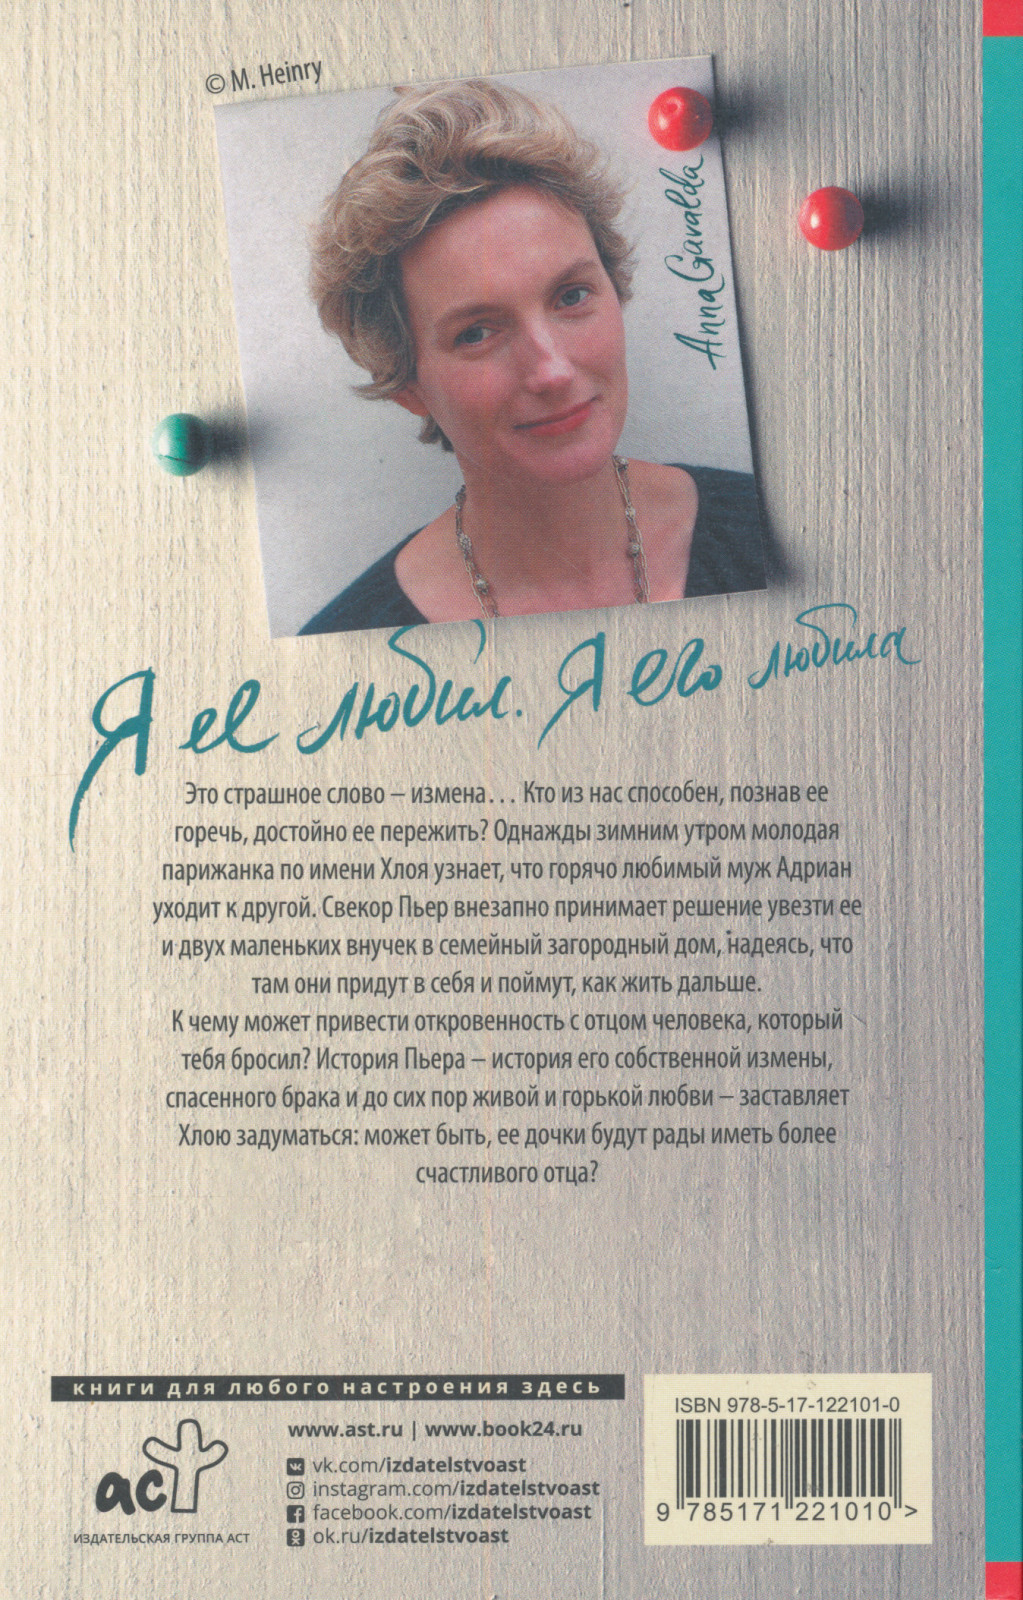 © M. Heinry
Anna Gavalda
Я ее любил. Я его любила
Это страшное слово – измена... Кто из нас способен, познав ее
горечь, достойно ее пережить? Однажды зимним утром молодая
парижанка по имени Хлоя узнает, что горячо любимый муж Адриан
уходит к другой. Свекор Пьер внезапно принимает решение увезти ее
и двух маленьких внучек в семейный загородный дом, надеясь, что
там они придут в себя и поймут, как жить дальше.
К чему может привести откровенность с отцом человека, который
тебя бросил? История Пьера – история его собственной измены,
спасенного брака и до сих пор живой и горькой любви – заставляет
Хлою задуматься: может быть, ее дочки будут рады иметь более
счастливого отца?
книги для любого настроения здесь
аст
ИЗДАТЕЛЬСКАЯ ГРУППА АСТ
www.ast.ru | www.book24.ru
vk.com/izdatelstvoast
instagram.com/izdatelstvoast
facebook.com/izdatelstvoast
ok.ru/izdatelstvoast
ISBN 978-5-17-122101-0
9 785171 221010 >